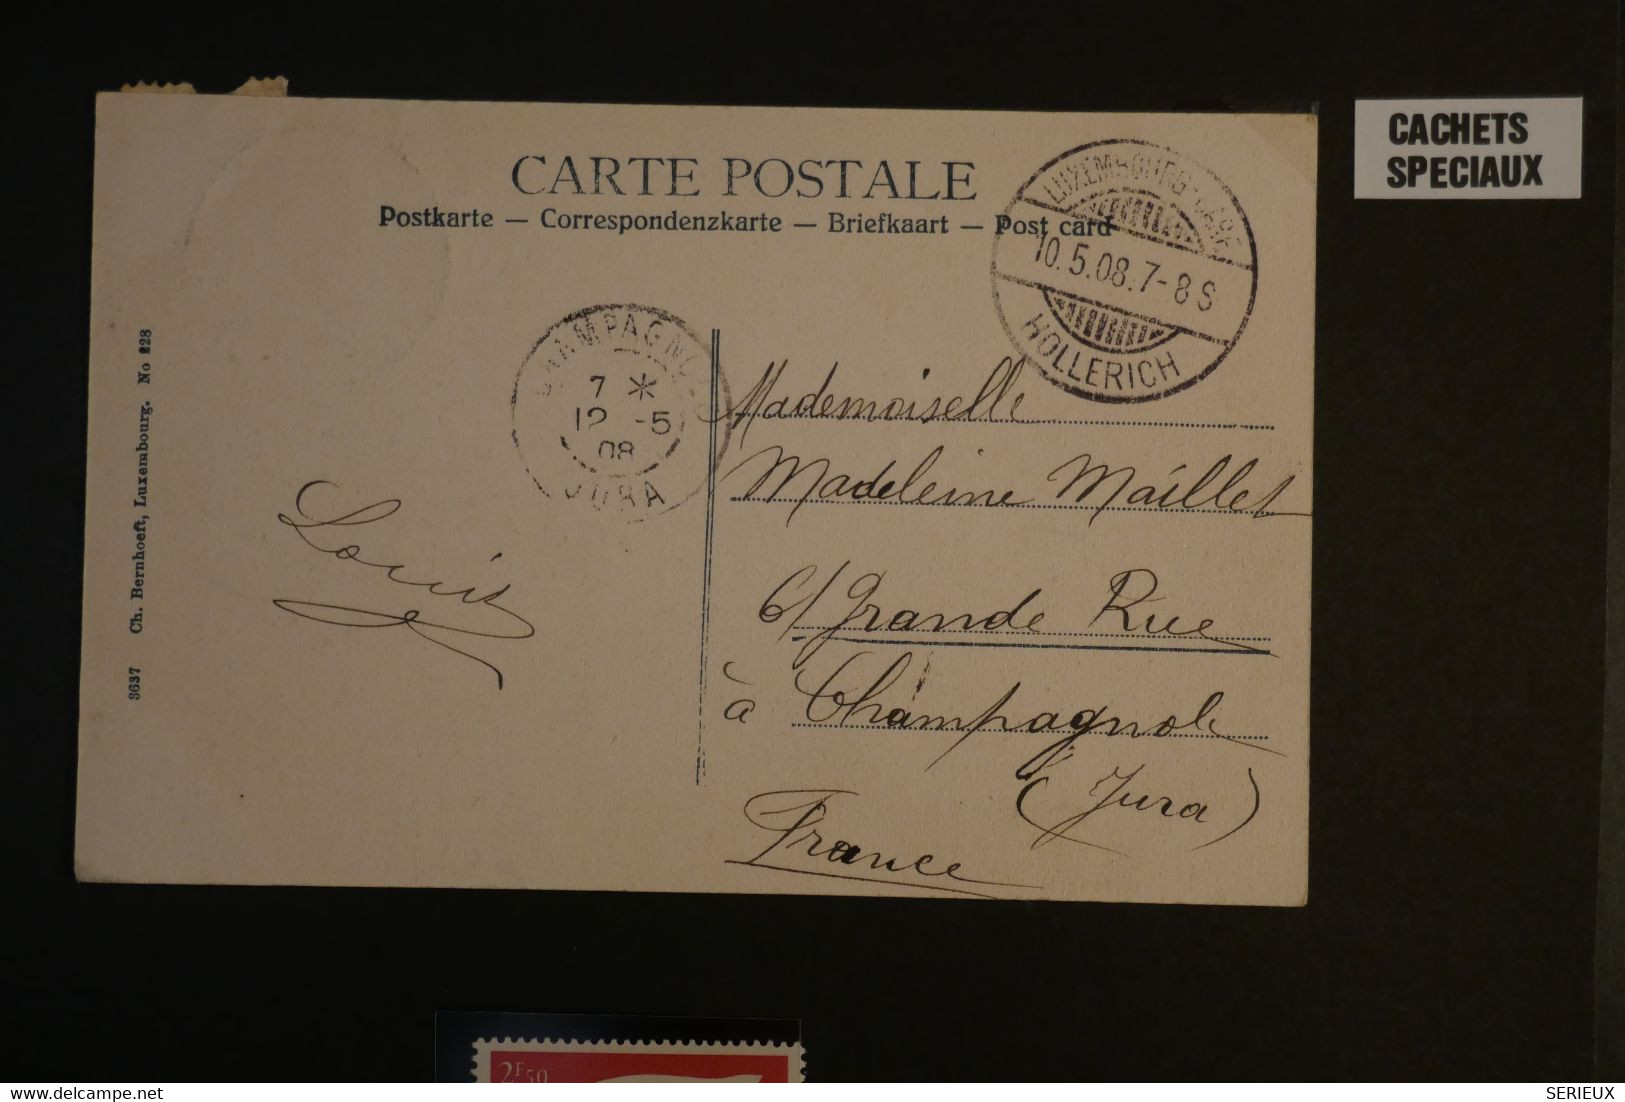 CARTE POSTALE
Postkarte — Correspondenzkarte — Briefkaart — Post card
CACHETS
SPECIAUX
LUXEMBOURG-GARE
10.5.08.7-8 S
HOLLERICH
7 *
12 -5
08
JURA
3637 Ch. Bernhoeft, Luxembourg. No 228
Louis
Mademoiselle
Madeleine Maillet
6/ Grande Rue
à Champagnole
(Jura)
France
2F50
SERIEUX